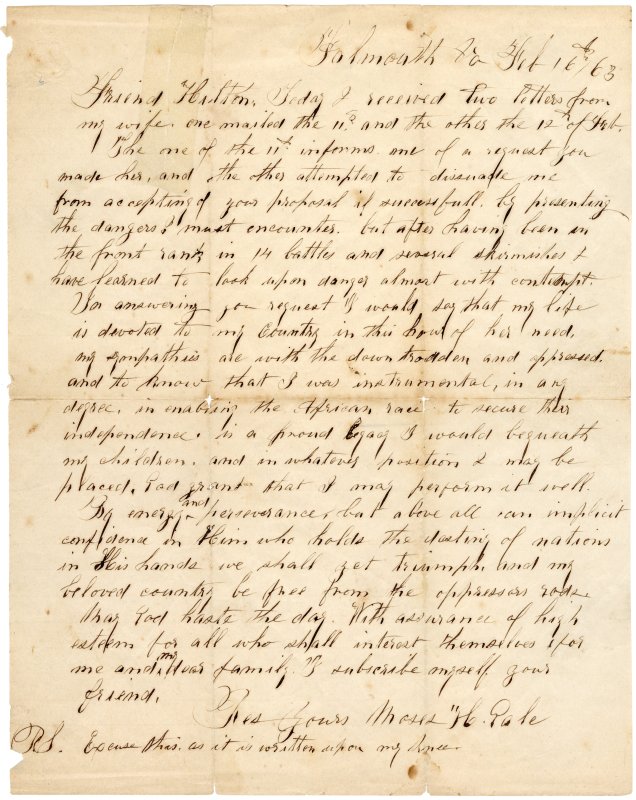 Falmouth Va Feb 16th/63
Friend Hilton, Today I received two letters from
my wife. one mailed the 11th and the other the 12th of Feb.
The one of the 11th informs me of a request you
made her, and the other attempted to dissuade me
from accepting of your proposal if successfull. by presenting
the dangers I must encounter. but after having been in
the front rank in 14 battles and several skirmishes I
have learned to look upon danger almost with contempt.
In answering you request I would say that my life
is devoted to my Country in this hour of her need,
my sympathies are with the down trodden and oppressed.
and to know that I was instrumental, in any
degree, in enabling the African race to secure their
independence. is a proud legacy I would bequeath
my children. and in whatever position I may be
placed, God grant that I may perform it well.
By energy and perseverance, but above all an implicit
confidence in Him who holds the destiny of nations
in His hands we shall yet triumph. and my
beloved country be free from the oppressors rods.
May God haste the day. With assurance of high
esteem for all who shall interest themselves for
me and my dear family. I subscribe myself your
friend.
Res Yours Moses H. Gale
P.S. Excuse this. as it is written upon my knee.